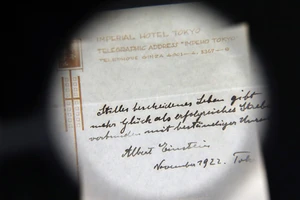 IMPERIAL HOTEL TOKYO
TELEGRAPHIC ADDRESS
TELEPHONE GINZA
Stilles bescheidenes Leben gibt
mehr Glück als erfolgreiches Streben
verbunden mit beständiger
Albert Einstein
November 1922. Tok